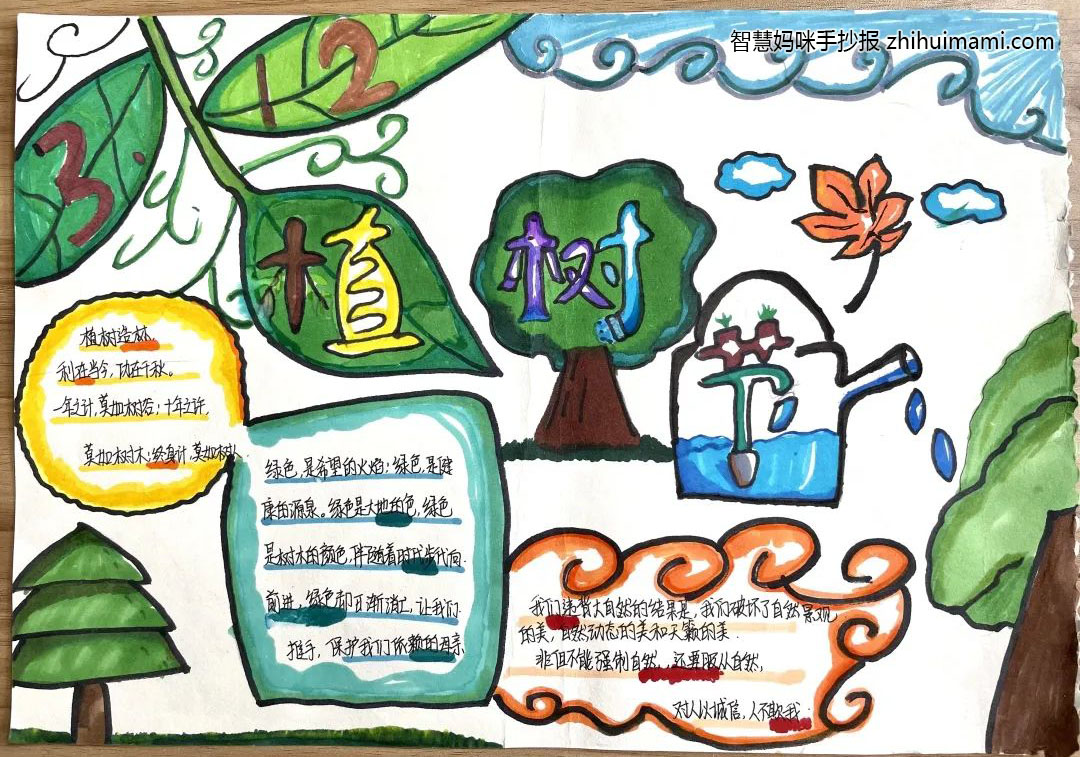 智慧妈咪手抄报 zhihuimami.com
3.12
植树节
植树造林,
利在当今,功在千秋。
一年之计,莫如树谷;十年之计,
莫如树木;终身计,莫如树人
绿色,是希望的火焰;绿色,是健
康的源泉。绿色是大地的色,绿色
是树木的颜色,伴随着时代步伐向
前进,绿色却日渐消亡,让我们
推手,保护我们依赖的母亲
我们违背大自然的结果是,我们破坏了自然景观
的美,自然动态的美和天籁的美.
非但不能强制自然,还要服从自然,
对人以诚信,人不欺我.